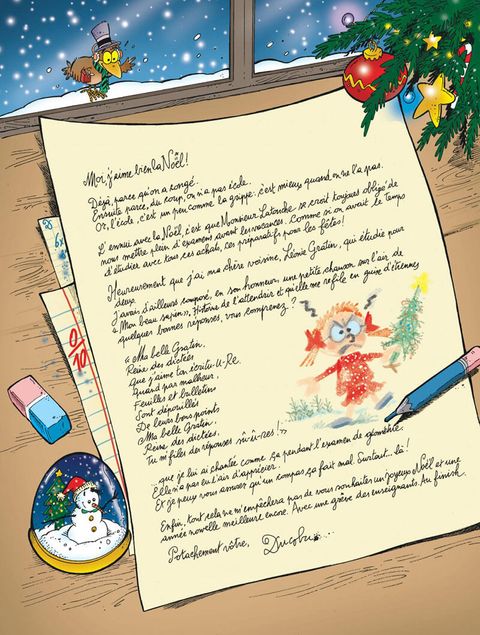 Moi, j'aime bien la Noël !
Déjà, parce qu'on a congé.
Ensuite parce, du coup, on n'a pas école.
Or, l'école, c'est un peu comme la grippe : c'est mieux quand on ne l'a pas.
L'ennui avec la Noël, c'est que Monsieur Latouche se croit toujours obligé de
nous mettre plein d'examens avant les vacances. Comme si on avait le temps
d'étudier avec tous ces achats, ces préparatifs pour les fêtes !
Heureusement que j'ai ma chère voisine, Léonie Gratin, qui étudie pour
deux.
J'avais d'ailleurs composé, en son honneur, une petite chanson sur l'air de
« Mon beau sapin », Histoire de l'attendrir et qu'elle me refile en guise d'étrennes
quelques bonnes réponses, vous comprenez ?
« Ma belle Gratin,
Reine des dictées
Que j'aime ton écritu-U-Re.
Quand par malheur,
Feuilles et bulletins
Sont dépouillés
De leurs bons points
Ma belle Gratin,
Reine des dictées,
Tu m'files des réponses sû-û-res ! »
... que je lui ai chantée comme ça pendant l'examen de géométrie.
Elle n'a pas eu l'air d'apprécier.
Et je peux vous assurer qu'un compas, ça fait mal. Surtout... là !
Enfin, tout cela ne m'empêchera pas de vous souhaiter un joyeux Noël et une
année nouvelle meilleure encore. Avec une grève des enseignants. Au finish.
Potachement vôtre,
Ducobu...
0/10